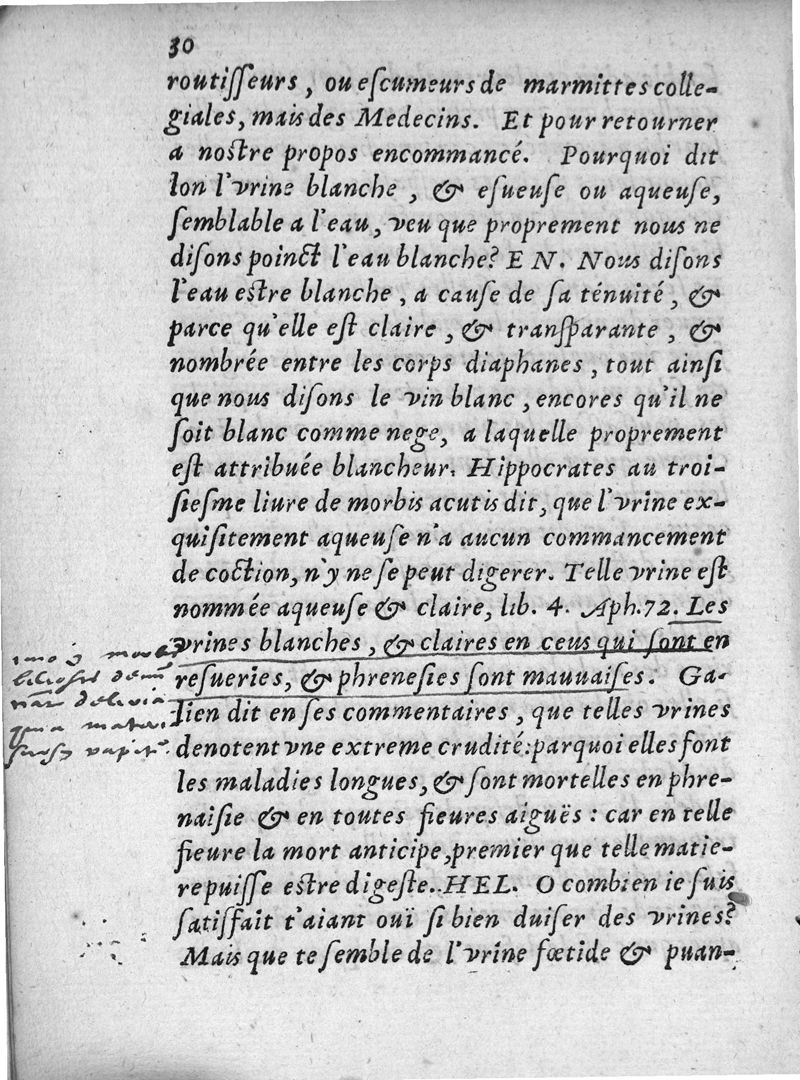 30
routiſſeurs, ou eſcumeurs de marmittes colle-
giales, mais des Medecins. Et pour retourner
a noſtre propos encommancé. Pourquoi dit
lon l'vrine blanche, & eſueuſe ou aqueuſe,
ſemblable a l'eau, veu que proprement nous ne
diſons poinct l'eau blanche? E N. Nous diſons
l'eau eſtre blanche, a cauſe de ſa ténuité, &
parce qu'elle eſt claire, & tranſparante, &
nombrée entre les corps diaphanes, tout ainſi
que nous diſons le vin blanc, encores qu'il ne
ſoit blanc comme nege, a laquelle proprement
eſt attribuée blancheur. Hippocrates au troi-
ſieſme liure de morbis acutis dit, que l'vrine ex-
quiſitement aqueuſe n'a aucun commancement
de coction, n'y ne ſe peut digerer. Telle vrine eſt
nommée aqueuſe & claire, lib. 4. Aph. 72. Les
vrines blanches, & claires en ceus qui ſont en
reſueries, & phreneſies ſont mauuaiſes. Ga-
lien dit en ſes commentaires, que telles vrines
denotent vne extreme crudité: parquoi elles ſont
les maladies longues, & ſont mortelles en phre-
naiſie & en toutes fieures aiguës : car en telle
fieure la mort anticipe, premier que telle matie-
re puiſſe eſtre digeſte. HEL. O combien ie ſuis
ſatiſfait t'aiant ouï ſi bien duiſer des vrines?
Mais que te ſemble de l'vrine fœtide & puan-